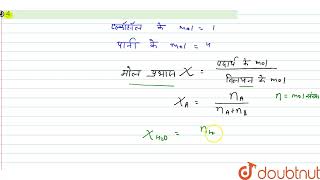 एथेनॉल के mol = 1
पानी के mol = 4
मोल प्रभाज X = पदार्थ के mol / विलयन के mol
X_A = n_A / n_A + n_B n = mol संख्या
X_H₂O = n
doubtnut